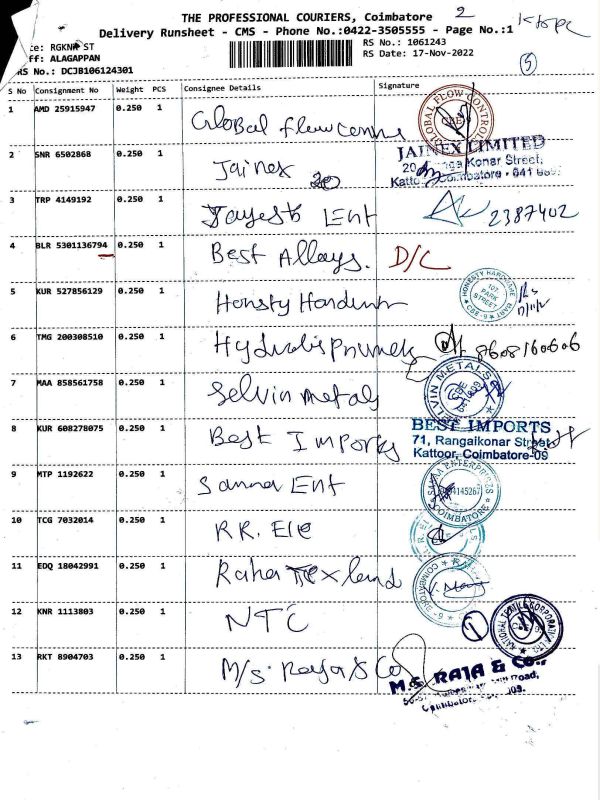 THE PROFESSIONAL COURIERS, Coimbatore 2
Delivery Runsheet - CMS - Phone No.:0422-3505555 - Page No.:1
RGKNR ST RS No.: 1061243
ALAGAPPAN RS Date: 17-Nov-2022
RS No.: DCJB106124301 5
S No Consignment No Weight PCS Consignee Details Signature
1 AMD 25915947 0.250 1 Global flow GLOBAL FLOW CONTROL CBE-9
2 SNR 6502868 0.250 1 Jainex 20 JAINEX LIMITED
Konar Street,
Coimbatore - 641
3 TRP 4149192 0.250 1 Jayesh Ent 2387402
4 BLR 5301136794 0.250 1 Best Alloys. D/C
5 KUR 527856129 0.250 1 HONESTY HARDWARE MART 107 PARK STREET CBE-9
6 TMG 200308510 0.250 1 8608160606
7 MAA 858561758 0.250 1 Selvin metals SELVIN METALS CBE 641009
8 KUR 608278075 0.250 1 Best Imports BEST IMPORTS
71, Rangaikonar Street
Kattoor, Coimbatore-09
9 MTP 1192622 0.250 1 Sanna Ent ENTERPRISES COIMBATORE
10 TCG 7032014 0.250 1 R.R. Ele
11 EDQ 18042991 0.250 1 Raha Tex land COIMBATORE - 9
12 KNR 1113803 0.250 1 NTC 1 NATIONAL TEXTILE CORPORATION LTD
13 RKT 8904703 0.250 1 M/s. Raja & Co M.S. RAJA & Co.,
Road,